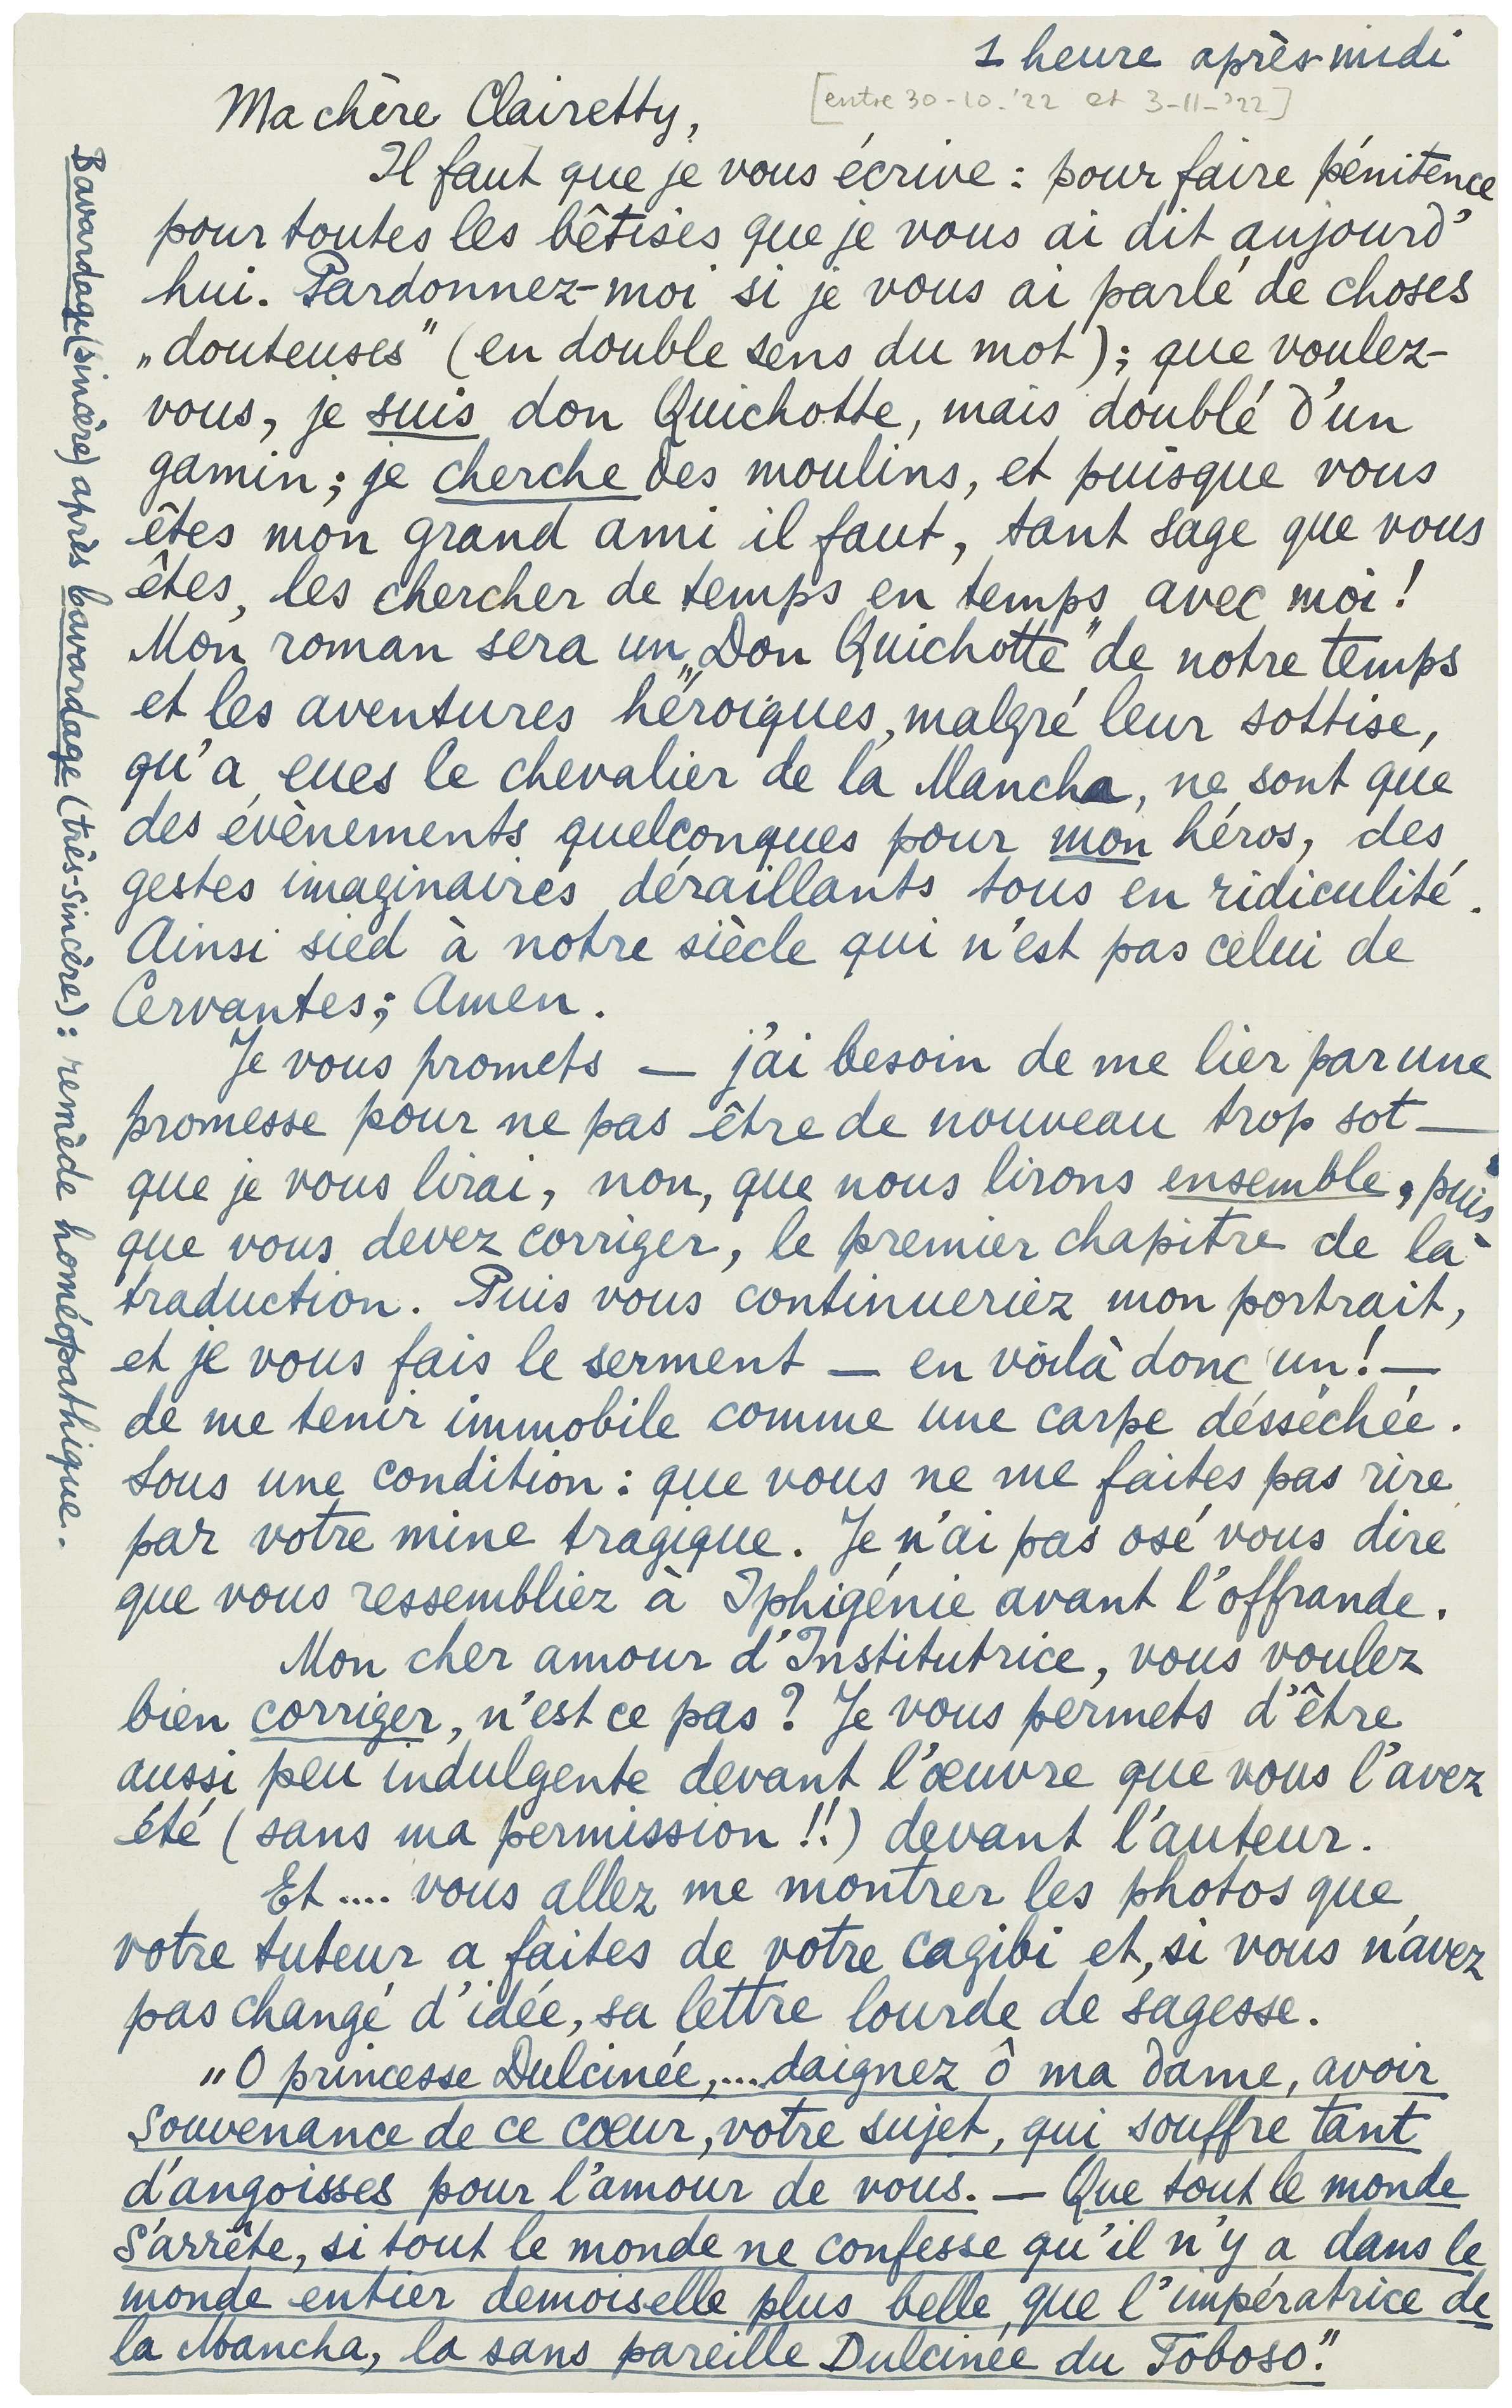 1 heure après-midi
[entre 30-10-'22 et 3-11-'22]
Ma chère Clairetty,
Il faut que je vous écrive : pour faire pénitence
pour toutes les bêtises que je vous ai dit aujourd'
hui. Pardonnez-moi si je vous ai parlé de choses
„douteuses" (en double sens du mot); que voulez-
vous, je suis don Quichotte, mais doublé d'un
gamin; je cherche des moulins, et puisque vous
êtes mon grand ami il faut, tant sage que vous
êtes, les chercher de temps en temps avec moi!
Mon roman sera un „Don Quichotte" de notre temps
et les aventures héroïques, malgré leur sottise,
qu'a eues le chevalier de la Mancha, ne sont que
des évènements quelconques pour mon héros, des
gestes imaginaires déraillants tous en ridiculité.
Ainsi sied à notre siècle qui n'est pas celui de
Cervantes; Amen.
Je vous promets — j'ai besoin de me lier par une
promesse pour ne pas être de nouveau trop sot —
que je vous lirai, non, que nous lirons ensemble, puis
que vous devez corriger, le premier chapitre de la
traduction. Puis vous continueriez mon portrait,
et je vous fais le serment — en voilà donc un! —
de me tenir immobile comme une carpe désséchée.
Sous une condition : que vous ne me faites pas rire
par votre mine tragique. Je n'ai pas osé vous dire
que vous ressembliez à Iphigénie avant l'offrande.
Mon cher amour d'Institutrice, vous voulez
bien corriger, n'est ce pas? Je vous permets d'être
aussi peu indulgente devant l'œuvre que vous l'avez
été (sans ma permission!!) devant l'auteur.
Et .... vous allez me montrer les photos que
votre tuteur a faites de votre cagibi et, si vous n'avez
pas changé d'idée, sa lettre lourde de sagesse.
„O princesse Dulcinée,.... daignez ô ma dame, avoir
souvenance de ce cœur, votre sujet, qui souffre tant
d'angoisses pour l'amour de vous. — Que tout le monde
s'arrête, si tout le monde ne confesse qu'il n'y a dans le
monde entier demoiselle plus belle, que l'impératrice de
la Mancha, la sans pareille Dulcinée du Toboso."
Bavardage (sincère) après bavardage (très-sincère) : remède homéopathique.